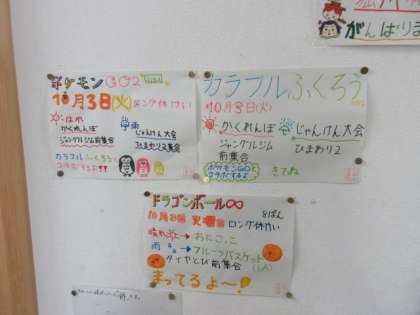 がんばりま
ポケモンGO2
10月3日(火)ロング休けい
はれ
かくれんぼ
ジャングルジム前集合
雨
じゃんけん大会
ひまわり2集合
カラフルふくろう
コラボするよ!!
カラフルふくろう
10月3日(火)
かくれんぼ
ジャングルジム
前集合
じゃんけん大会
ひまわり2
ポケモンGOと
コラボするよ
きてね
ドラゴンボール∞
8はん
10月3日 火曜日 ロング休けい
晴れ→おにごっこ
雨→フルーツバスケット
タイヤとび前集合
まってるよ〜!